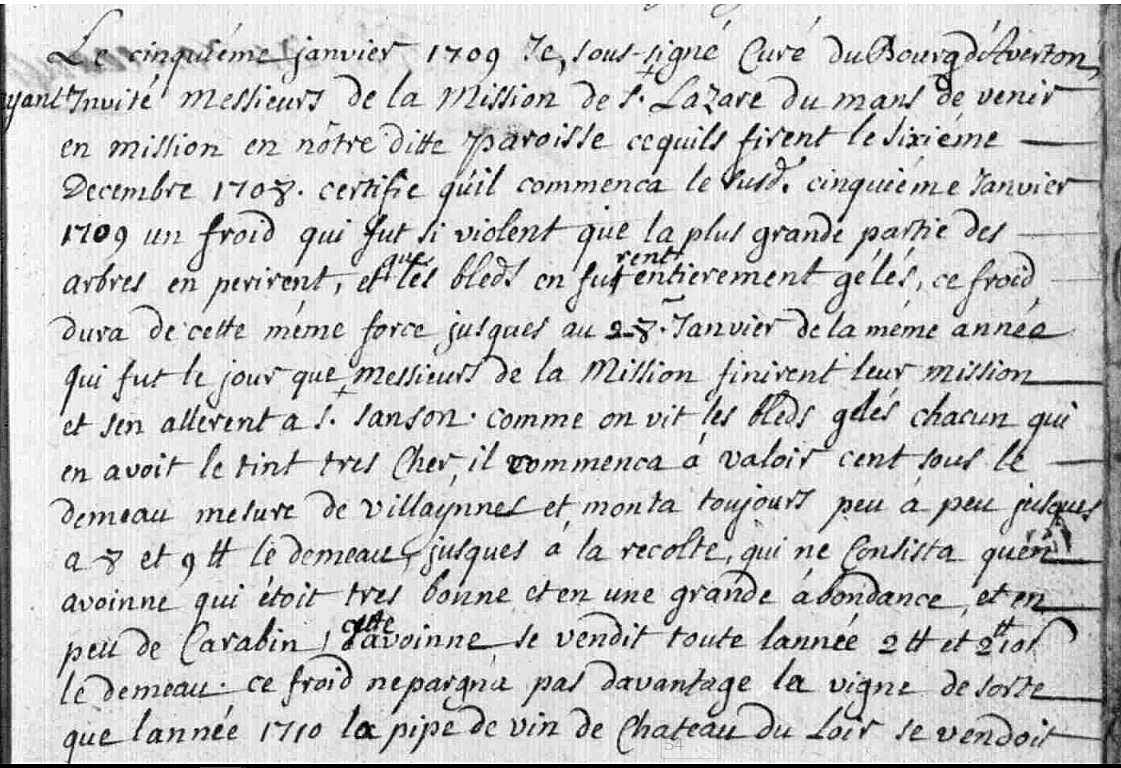 Le cinquiéme janvier 1709 Je, sous-signé Curé du Bourg d'Averton,
ayant Invité Messieurs de la Mission de St. Lazare du mans de venir
en mission en nôtre ditte paroisse cequils firent le sixiéme
Decembre 1708. certifie qúil commenca le susd. cinquiéme Janvier
1709 un froid qui fut si violent que la plus grande partie des
arbres en perirent, et que les bleds en furent entierement gélés, ce froid
dura de cette méme force jusques au 28. Janvier de la méme année
qui fut le jour que Messieurs de la Mission finirent leur mission
et sen allerent a St. Sanson. comme on vit les bleds gelés chacun qui
en avoit le tint tres Cher, il commenca á valoir cent sous le
demeau mesure de villaynnes et monta toujours peu á peu jusques
a 8 et 9 tt le demeau, jusques á la recolte, qui ne Consista quen
avoinne qui étoit tres bonne et en une grande ábondance, et en
peu de Carabin, cette avoinne se vendit toute lannée 2 tt et 2 tt 10s
le demeau. ce froid nepargna pas davantage la vigne de sorte
que lannée 1710 la pipe de vin de Chateau du Loir se vendoit